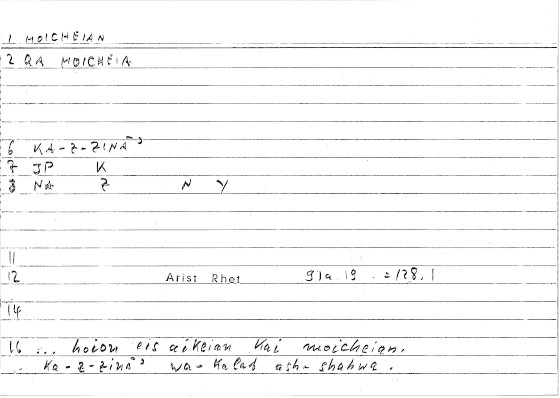 1 MOICHEIAN
2 QA MOICHEIA
6 KA-Z-ZINĀ'
7 JP K
8 NA Z N Y
11
12 Arist Rhet 91a.19 . =128.1
14
16 ... hoion eis aikeian kai moicheian.
Ka-z-zinā' wa- ash-shahwa.